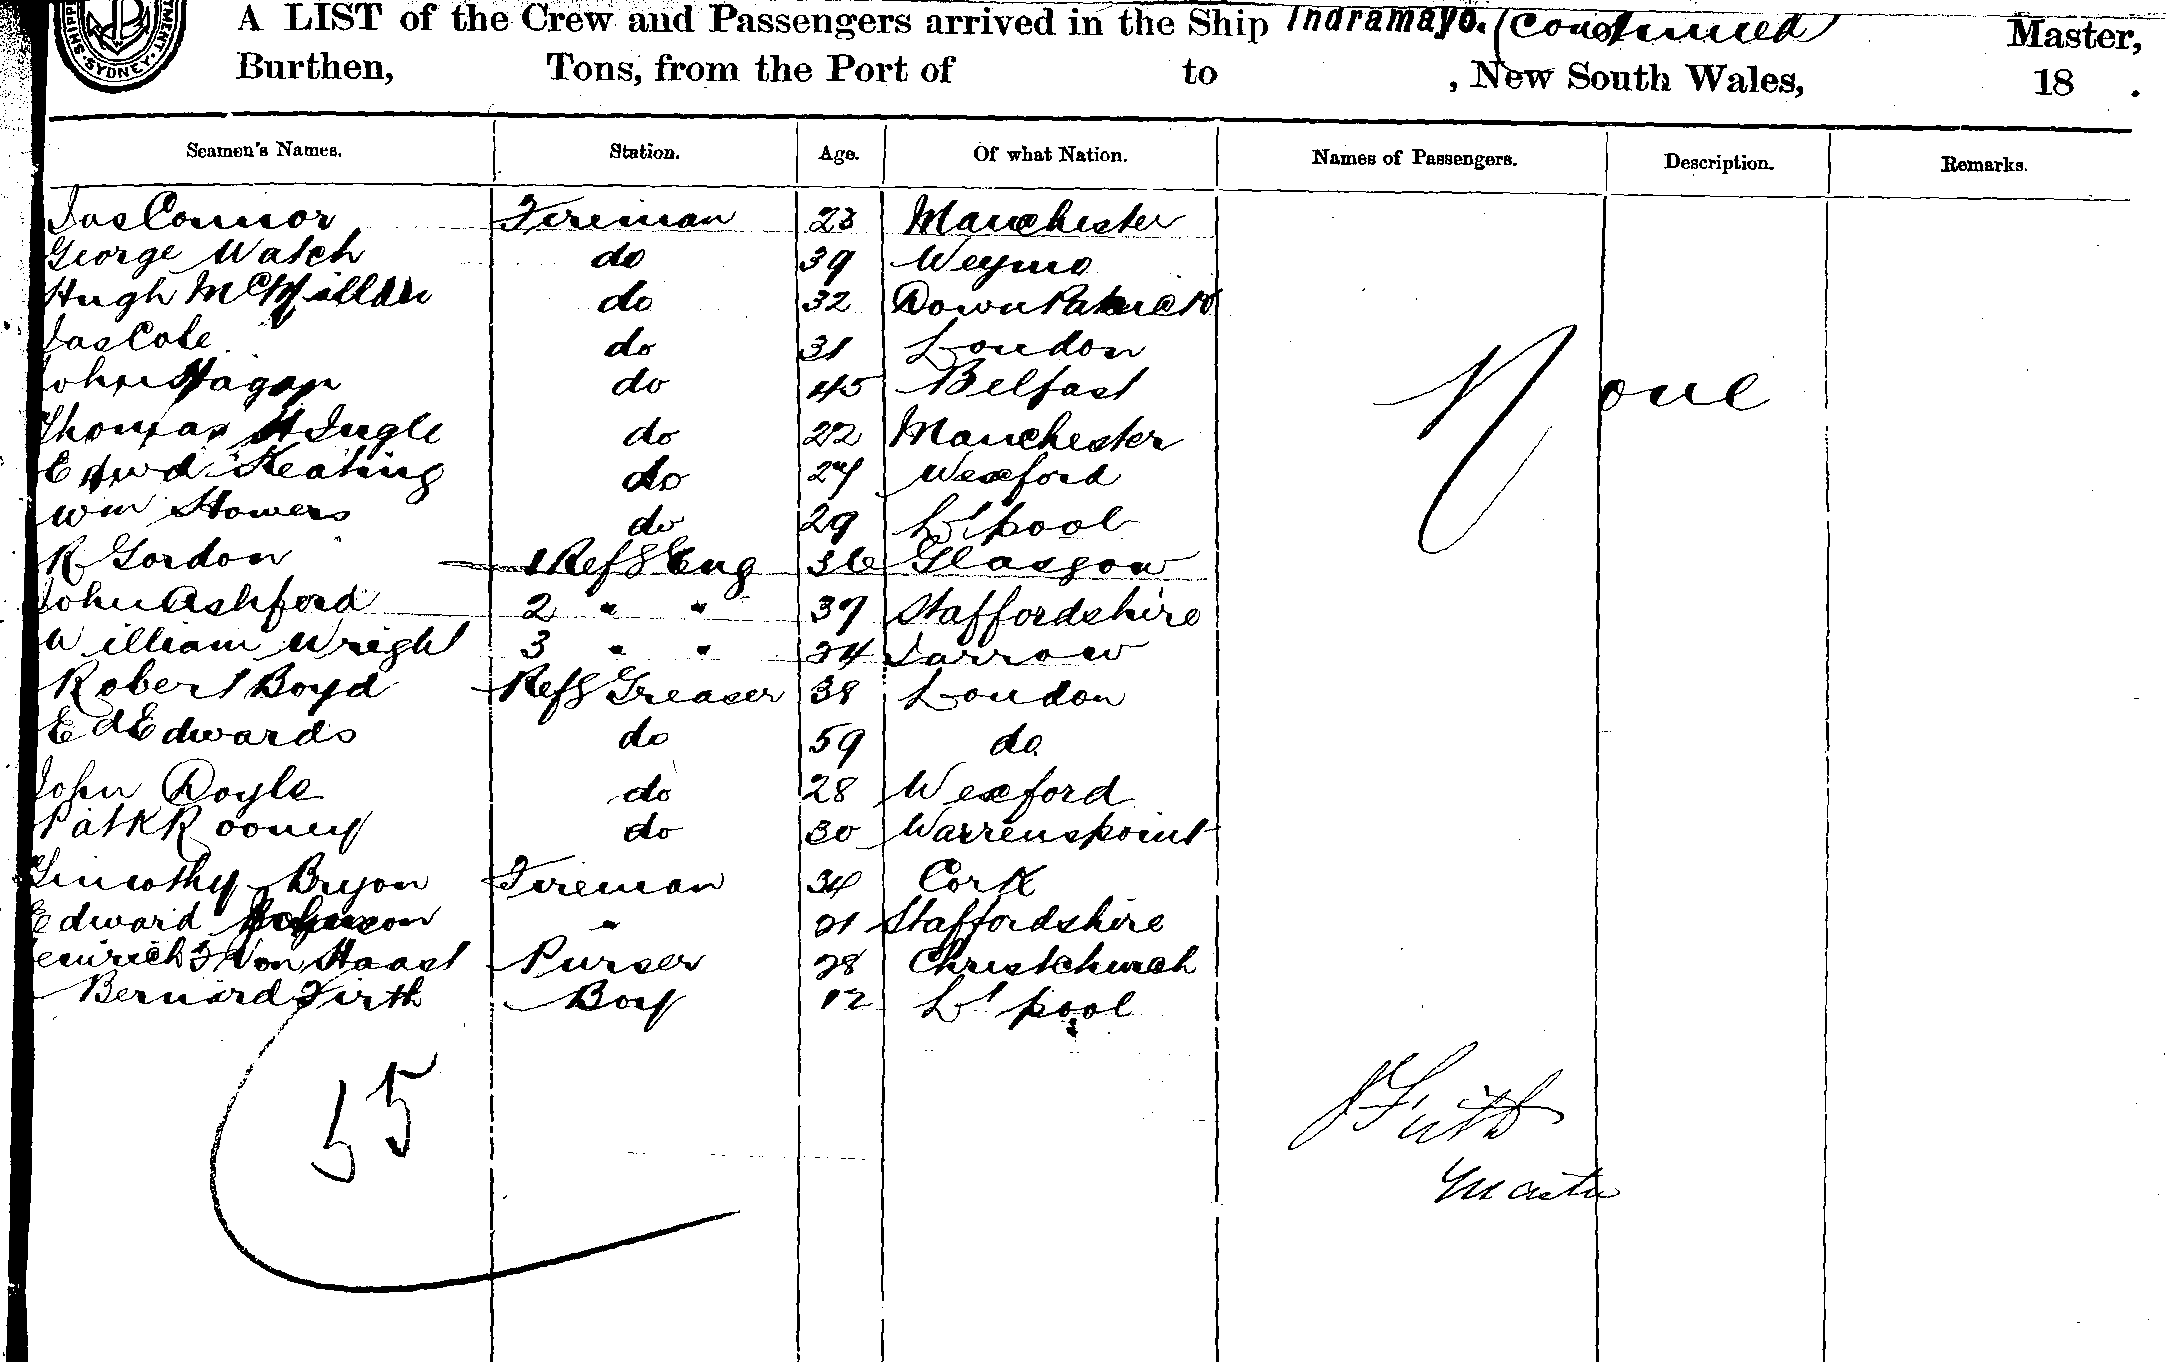 MENT. SYDNEY. SHIP
A LIST of the Crew and Passengers arrived in the Ship Indramayo. (Continued Master,
Burthen, Tons, from the Port of to , New South Wales, 18 .
Seamen's Names. Station. Age. Of what Nation. Names of Passengers. Description. Remarks.
Jas Connor Fireman 23 Manchester
George Watch do 39 Weymo
Hugh McMillan do 32 DownPatrick
Jas Cole do 31 London
John Hagan do 45 Belfast
None
Thomas H Ingle do 22 Manchester
Edwd Keating do 27 Wexford
Wm Howers do 29 L'pool
R Gordon 1 Refg Eng 36 Glasgow
John Ashford 2 " " 37 Staffordshire
William Wright 3 " " 34 Jarrow
Robert Boyd Refg Greaser 38 London
Ed Edwards do 59 do
John Doyle do 28 Wexford
Patk Rooney do 30 Warrenspoint
Timothy Bryon Fireman 34 Cork
Edward Johnson " 21 Staffordshire
einrich F Von Haast Purser 28 Christchurch
Bernard Firth Boy 12 L'pool
55
J Firth
Master